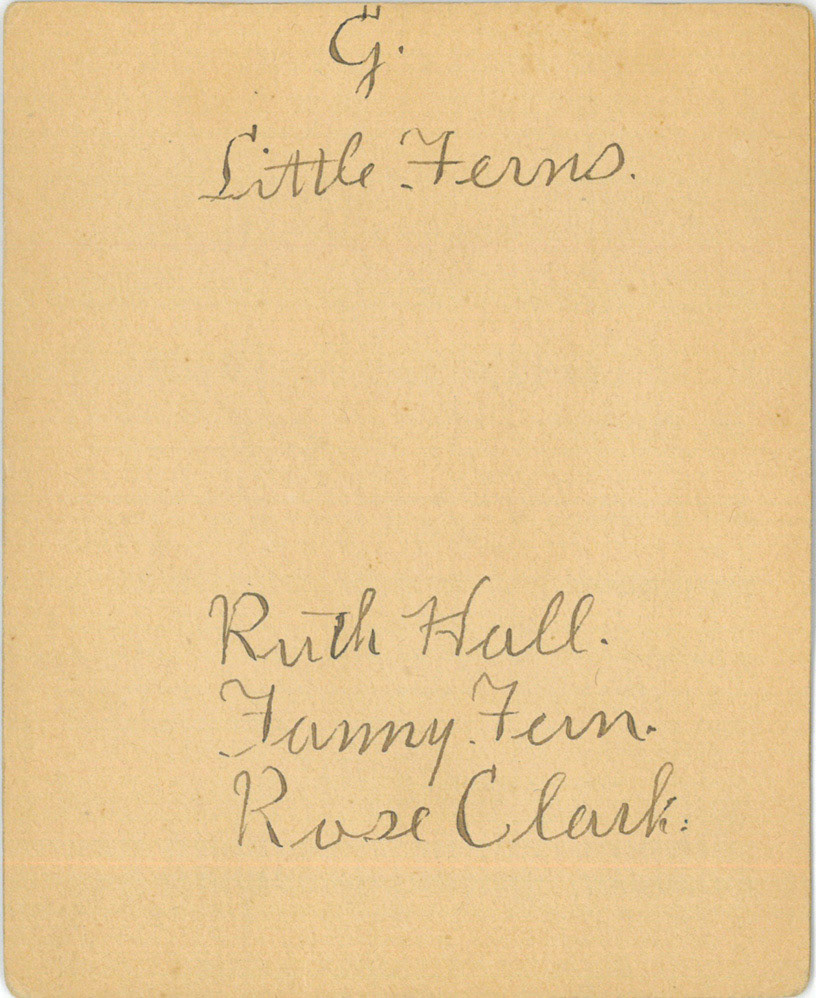 G.
Little Ferns.
Ruth Hall.
Fanny Fern.
Rose Clark.